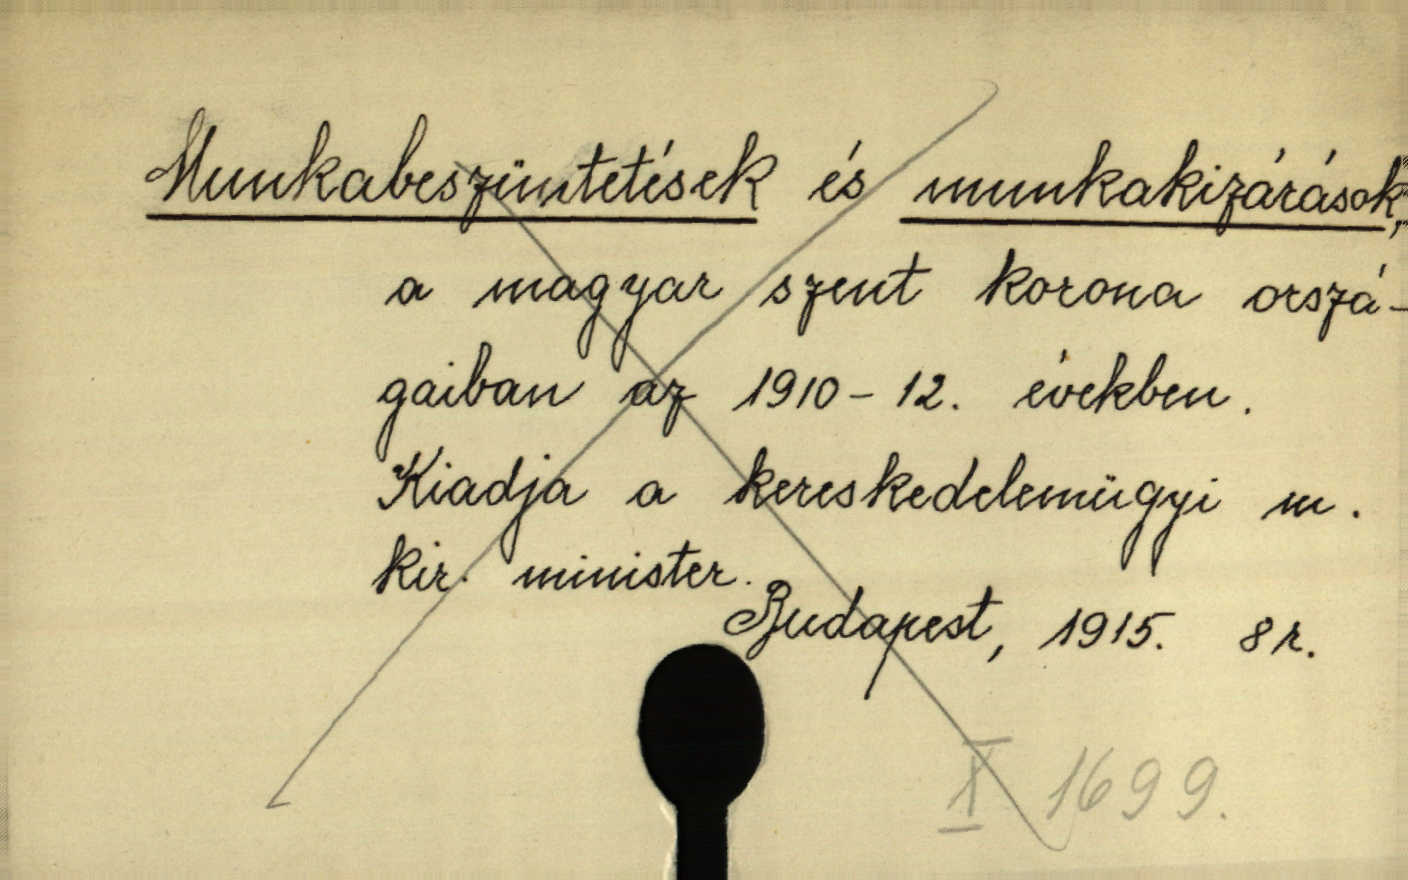 Munkabeszüntetések és munkakizárások,
a magyar szent korona orszá-
gaiban az 1910-12. években.
Kiadja a kereskedelemügyi m.
kir. minister.
Budapest, 1915. 8r.
X 1699.